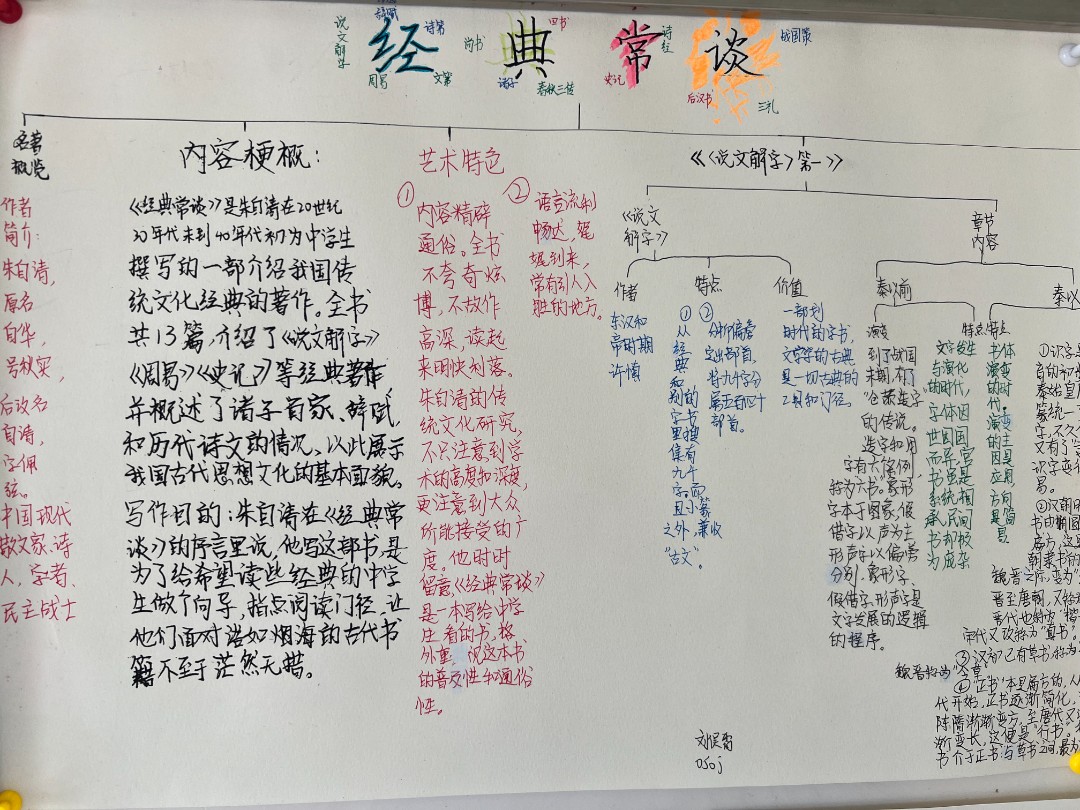 经典常谈
说文解字
辞赋
诗第
周易
文第
尚书
四书
诸子
春秋三传
诗经
史记
战国策
后汉书
三礼
名著
概览
作者
简介：
朱自清，
原名
自华，
号秋实，
后改名
自清，
字佩
弦。
中国现代
散文家、诗
人，学者、
民主战士
内容梗概：
《经典常谈》是朱自清在20世纪
30年代末到40年代初为中学生
撰写的一部介绍我国传
统文化经典的著作。全书
共13篇，介绍了《说文解字》
《周易》《史记》等经典著作
并概述了诸子百家、辞赋，
和历代诗文的情况、以此展示
我国古代思想文化的基本面貌。
写作目的：朱自清在《经典常
谈》的序言里说，他写这部书，是
为了给希望读些经典的中学
生做个向导，指点阅读门径，让
他们面对浩如烟海的古代书
籍不至于茫然无措。
艺术特色
①
内容精辟
通俗。全书
不夸奇炫
博，不故作
高深，读起
来明快利落。
朱自清的传
统文化研究，
不只注意到学
术的高度和深度，
更注意到大众
所能接受的广
度。他时时
留意《经典常谈》
是一本写给中学
生看的书，格
外重 说这本书
的普及性和通俗
性。
②
语言流利
畅达，娓
娓到来，
常有引人入
胜的地方。
《〈说文解字〉第一》
《说文
解字》
作者
东汉和
帝时期
许慎
特点
①从经典和别的字书里搜集有九千字，而且小篆
之外，兼收
“古文”。
②
分析偏旁
定出部首，
将九千字分
属五百四十
部首。
价值
一部划
时代的字书，
文字学的古典
是一切古典的
工具和门径
章节
内容
秦以前
演变
到了战国
末期，有了
“仓颉造字”
的传说。
造字和用
字有六个条例，
称为六书。象形
字本于图象，假
借字以声为主
形声字以偏旁
分别，象形字、
假借字、形声字是
文字发展的逻辑
的程序。
特点
文字发生
与演化
的时代，
字体因
世国国
而异，官
书虽是
系统相
承，民间
书却极
为庞杂
秦以
特点
书体
演变
的时
代。
演变
的主
因是
应用，
方向
是简
易
①识字是
首的和
秦始皇
篆统一
字，不久
又有了
识字变
易。
②汉朝
书由椭圆
扁方，这
朝隶书的
魏晋之际，变为“
晋至唐朝，又称
宋代又改称为“真书”。
③汉初已有草书，称为
魏晋称为“今草”
④“正书”本是扁方的，从
代开始，正书逐渐简化，
陈隋渐渐变方，至唐代又
渐变长，这便是“行书”。
书介于正书与草书之间，最为